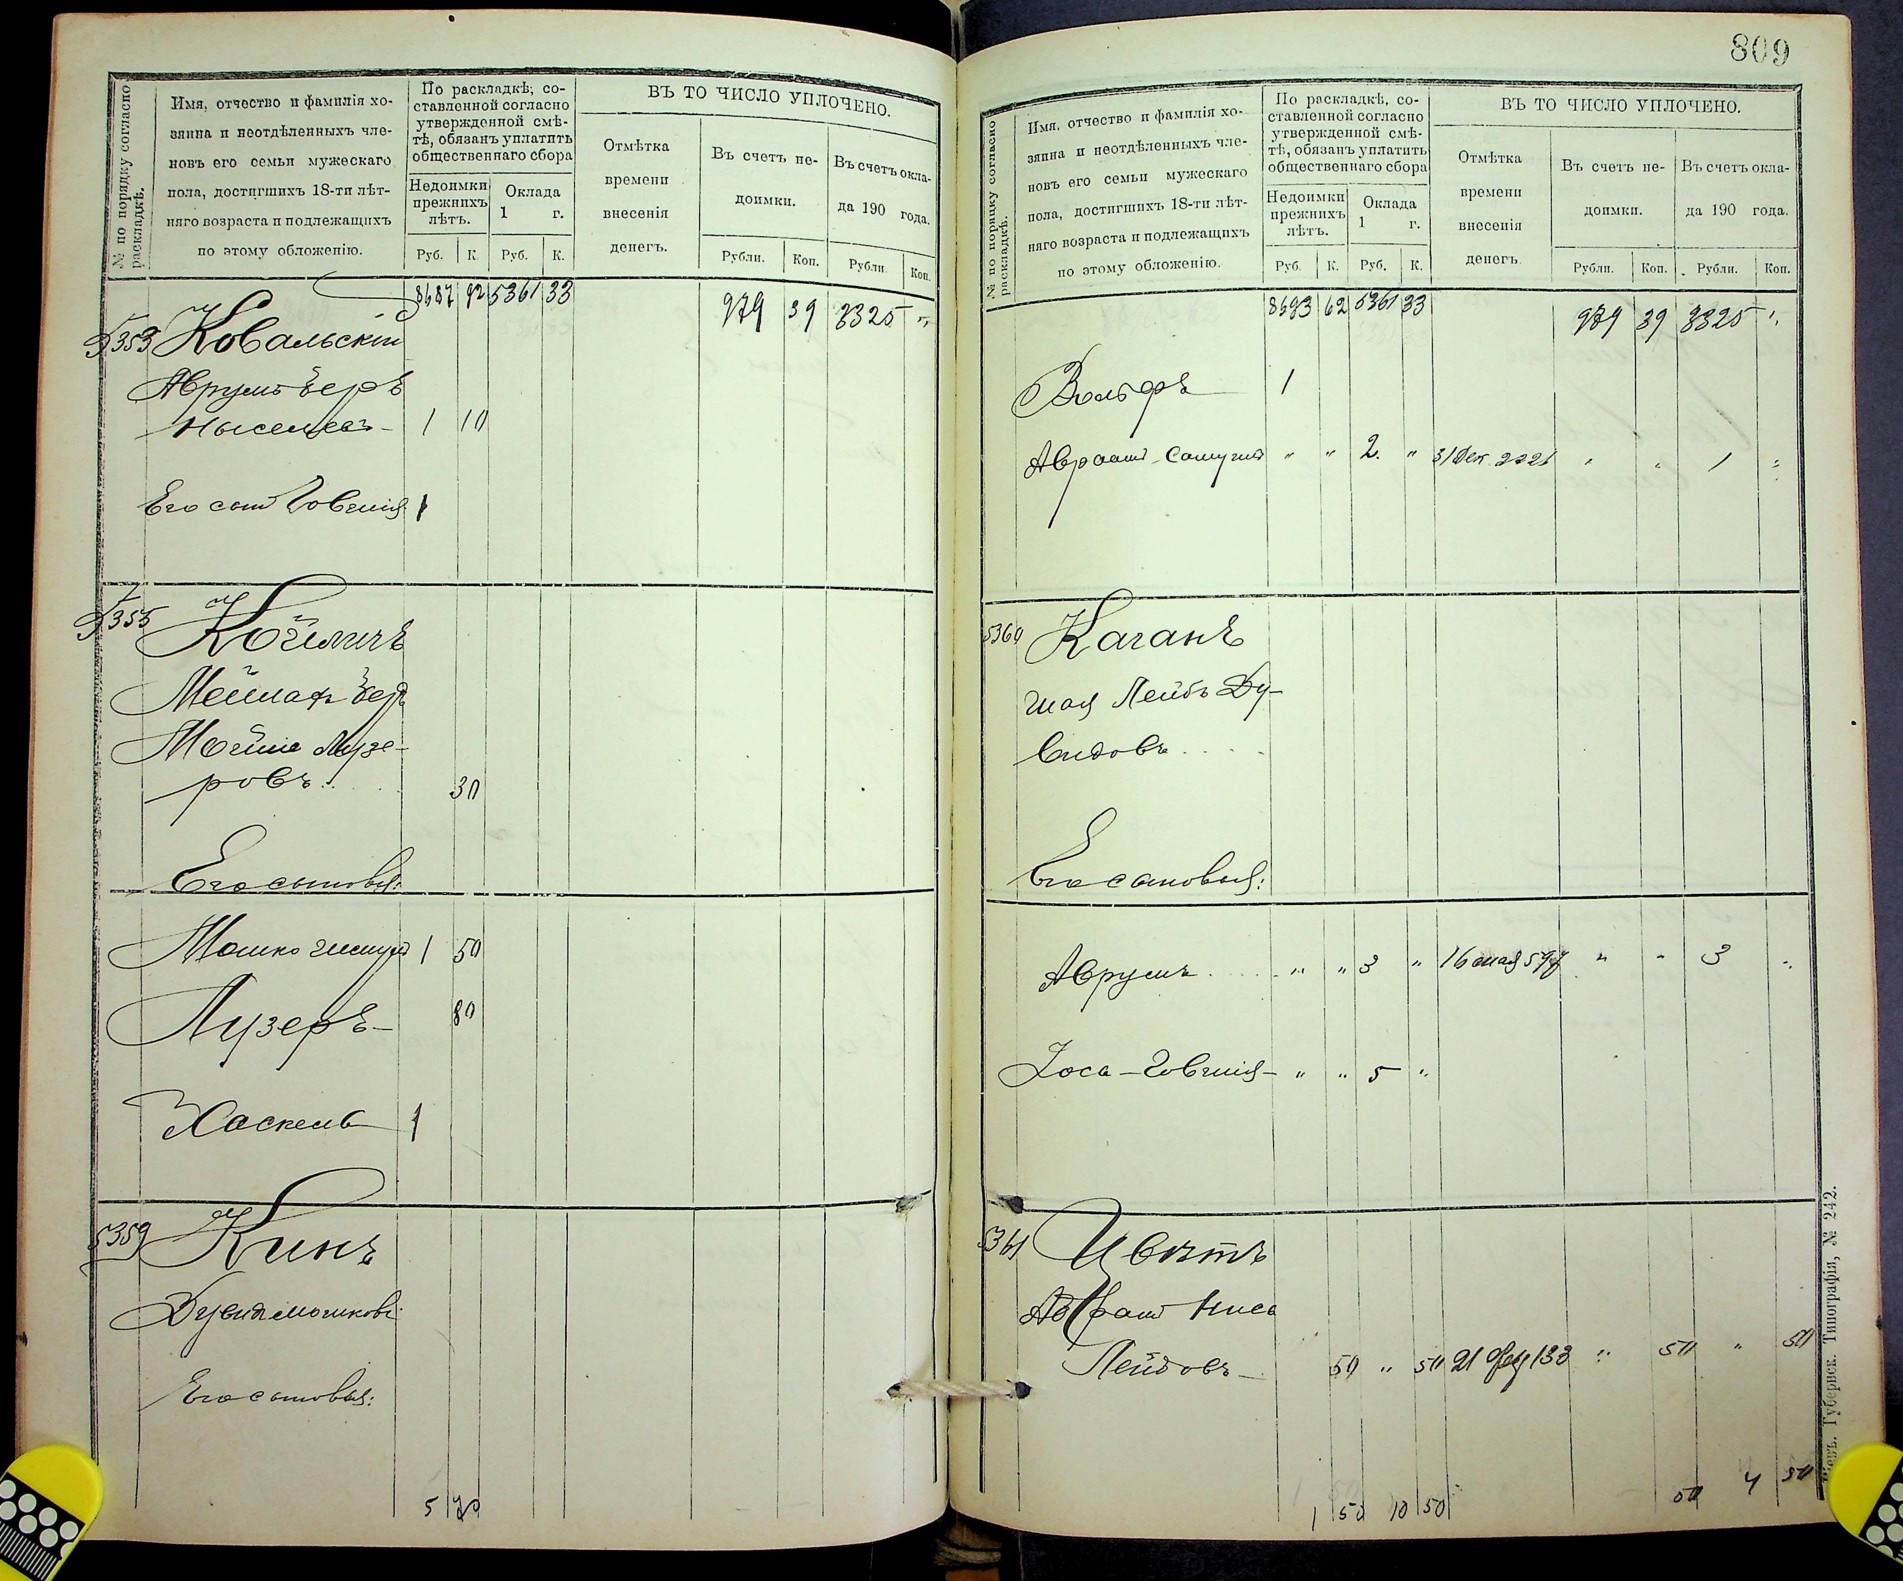 № по порядку согласно раскладкѣ.
Имя, отчество и фамилія хо-
зяина и неотдѣленныхъ чле-
новъ его семьи мужескаго
пола, достигшихъ 18-ти лѣт-
няго возраста и подлежащихъ
по этому обложенію.
По раскладкѣ, со-
ставленной согласно
утвержденной смѣ-
тѣ, обязанъ уплатить
общественнаго сбора
Недоимки
прежнихъ
лѣтъ.
Оклада
1 г.
Руб. К. Руб. К.
ВЪ ТО ЧИСЛО УПЛОЧЕНО.
Отмѣтка
времени
внесенія
денегъ.
Въ счетъ не-
доимки.
Въ счетъ окла-
да 190 года.
Рубли. Коп. Рубли Коп.
8687 92 5361 33 979 39 3325 "
5353 Ковальскій
Аврумъ Беръ
1 10
Его сынъ Говшія 1
5355
Мошко Лузе-
ровъ 30
Его сыновья:
Мошко 1 50
Лузеръ 80
Хаскель 1
5359 Кинъ
Дувидъ Мошковъ
Его сыновья:
5 70
809
№ по порядку согласно раскладкѣ.
Имя, отчество и фамилія хо-
зяина и неотдѣленныхъ чле-
новъ его семьи мужескаго
пола, достигшихъ 18-ти лѣт-
няго возраста и подлежащихъ
по этому обложенію.
По раскладкѣ, со-
ставленной согласно
утвержденной смѣ-
тѣ, обязанъ уплатить
общественнаго сбора
Недоимки
прежнихъ
лѣтъ.
Оклада
1 г.
Руб. К. Руб. К.
ВЪ ТО ЧИСЛО УПЛОЧЕНО.
Отмѣтка
времени
внесенія
денегъ.
Въ счетъ не-
доимки.
Въ счетъ окла-
да 190 года.
Рубли. Коп. Рубли. Коп.
8693 62 5361 33 979 39 3325 "
Вольфъ 1
Авраамъ Самуилъ " " 2 " 31 Дек. 2221 " " 1 "
5360 Каганъ
Шая Лейбъ Ду-
видовъ
Его сыновья:
Аврумъ " " 3 " 16 мая 597 " " 3 "
Іось-Говшія " " 5 "
5361 Цвѣтъ
Абрамъ Нисъ
Лейбовъ 50 " 50 21 фев 133 " 50 " 50
1 50 10 50 50 4 50
Губернск. Типографія, № 242.